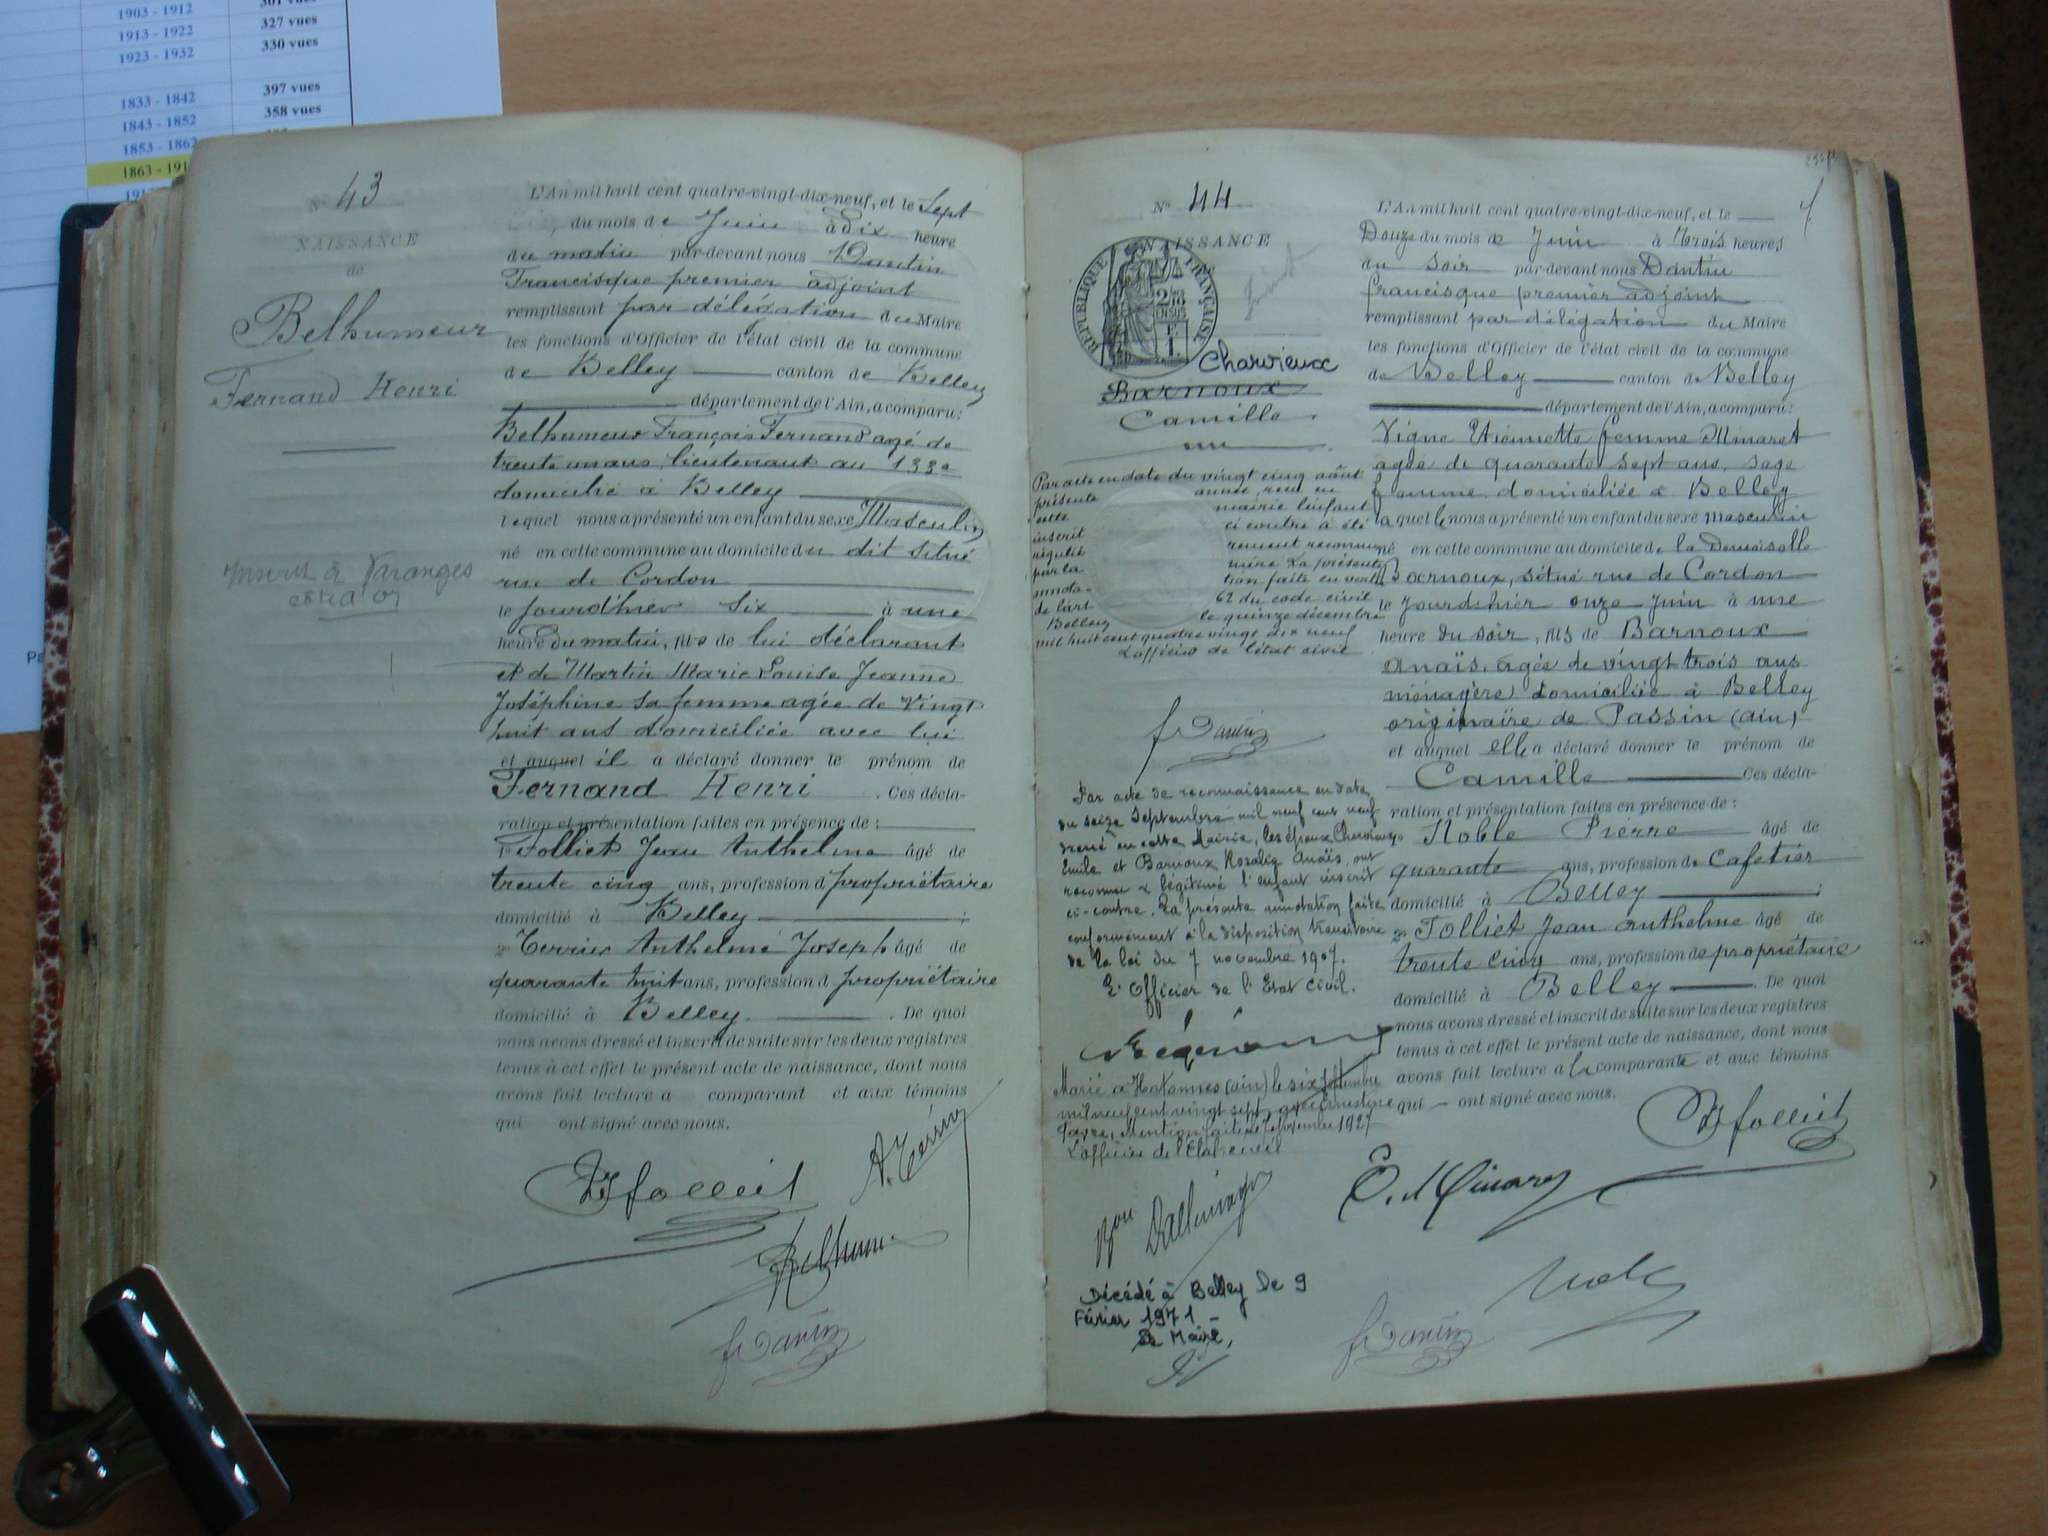 1903 - 1912 301 vues
1913 - 1922 327 vues
1923 - 1932 330 vues
1833 - 1842 397 vues
1843 - 1852 358 vues
1853 - 1862
1863 - 191
N° 43
NAISSANCE
de
Belhumeur
Fernand Henri
Inscrit à Varanges
L'An mil huit cent quatre-vingt-dix-neuf, et le Sept
du mois de Juin à dix heure
du matin par-devant nous Dantin
Francisque premier adjoint
remplissant par délégation du Maire
les fonctions d'Officier de l'état civil de la commune
de Belley canton de Belley
département de l'Ain, a comparu:
Belhumeur François Fernand agé de
trente un ans, lieutenant au 133e
domicilié à Belley
lequel nous a présenté un enfant du sexe Masculin
né en cette commune au domicile du dit situé
rue de Cordon
le jourd'hier six à une
heure du matin, fils de lui déclarant
et de Martin Marie Louise Jeanne
Joséphine sa femme agée de vingt
huit ans domiciliée avec lui
et auquel il a déclaré donner le prénom de
Fernand Henri . Ces décla-
ration et présentation faites en présence de :
1° Folliet Jean Anthelme âgé de
trente cinq ans, profession d propriétaire
domicilié à Belley ;
2° Terrier Anthelme Joseph âgé de
quarante huit ans, profession d propriétaire
domicilié à Belley . De quoi
nous avons dressé et inscrit de suite sur les deux registres
tenus à cet effet le présent acte de naissance, dont nous
avons fait lecture a comparant et aux témoins
qui ont signé avec nous.
A. Terrier
Folliet
Belhumeur
F. Dantin
N° 44
NAISSANCE
RÉPUBLIQUE FRANÇAISE
Charvieux
Barnoux
Camille
Par acte en date du vingt cinq août
présente année, reçu en
cette mairie l'enfant
inscrit ci contre à été
réguliè rement reconnu
par la mère La présente
annota- tion faite en vertu
de l'art 62 du code civil
Belley le quinze décembre
mil huit cent quatre vingt dix neuf
L'officier de l'état civil
F. Dantin
Par acte de reconnaissance en date
du seize Septembre mil neuf cent neuf
dressé en cette Mairie, les époux Charvieux
Emile et Barnoux Rosalie Anaïs, ont
reconnu & légitimé l'enfant inscrit
ci-contre. La présente annotation faite
conformément à la disposition transitoire
de la loi du 7 novembre 1907.
L'Officier de l'Etat Civil.
Marié à Hotonnes (ain) le six septembre
mil neuf cent vingt sept, avec Ernestine
Favre, Mention faite le 7 Septembre 1927
L'officier de l'Etat civil
Décédé à Belley le 9
Février 1971
Le Maire,
L'An mil huit cent quatre-vingt-dix-neuf, et le
Douze du mois de Juin à trois heures
du soir par-devant nous Dantin
francisque premier adjoint
remplissant par délégation du Maire
les fonctions d'Officier de l'état civil de la commune
de Belley canton de Belley
département de l'Ain, a comparu:
Vigne Etiennette femme Minaret
agée de quarante sept ans, sage
femme, domiciliée à Belley
laquelle nous a présenté un enfant du sexe masculin
né en cette commune au domicile de la Demoiselle
Barnoux, situé rue de Cordon
le jourd'hier onze juin à une
heure du soir, fils de Barnoux
Anaïs, agée de vingt trois ans
ménagère domiciliée à Belley
originaire de Passin (ain)
et auquel elle a déclaré donner le prénom de
Camille Ces décla-
ration et présentation faites en présence de :
1° Noble Pierre âgé de
quarante ans, profession de cafetier
domicilié à Belley ;
2° Folliet Jean anthelme âgé de
trente cinq ans, profession de propriétaire
domicilié à Belley . De quoi
nous avons dressé et inscrit de suite sur les deux registres
tenus à cet effet le présent acte de naissance, dont nous
avons fait lecture a la comparante et aux témoins
qui ont signé avec nous.
Folliet
E. Minaret
Noble
F. Dantin